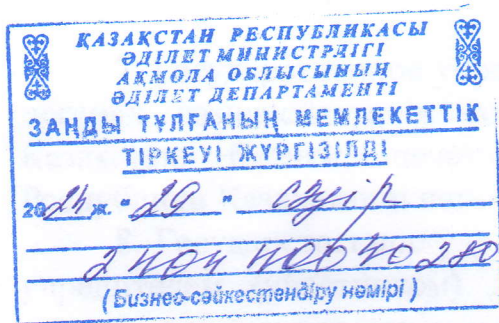 ҚАЗАҚСТАН РЕСПУБЛИКАСЫ
ӘДІЛЕТ МИНИСТРЛІГІ
АҚМОЛА ОБЛЫСЫНЫҢ
ӘДІЛЕТ ДЕПАРТАМЕНТІ
ЗАҢДЫ ТҰЛҒАНЫҢ МЕМЛЕКЕТТІК
ТІРКЕУІ ЖҮРГІЗІЛДІ
2024 ж. "29" сәуір
240440040280
(Бизнес-сәйкестендіру нөмірі)